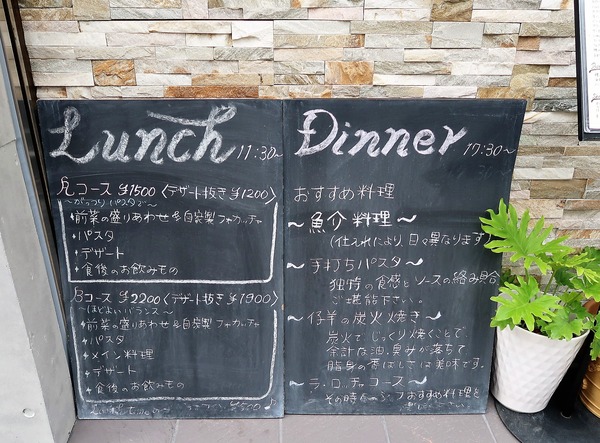 Lunch 11:30~
Aコース ¥1500 〈デザート抜き ¥1200〉
~がっつりパスタで~
・前菜の盛りあわせ&自家製フォカッチャ
・パスタ
・デザート
・食後のお飲みもの
Bコース ¥2200 〈デザート抜き ¥1900〉
~ほどよいバランス~
・前菜の盛りあわせ&自家製フォカッチャ
・パスタ
・メイン料理
・デザート
・食後のお飲みもの
¥500
Dinner 17:30~
おすすめ料理
~魚介料理~
(仕入れにより、日々異なります)
~手打ちパスタ~
独特の食感とソースの絡み具合
ご堪能下さい。
~仔羊の炭火焼き~
炭火でじっくり焼くことで、
余計な油、臭みが落ちて
脂身の香ばしさは美味です。
~ラ・ロッチャコース~
その時々のおすすめ料理を